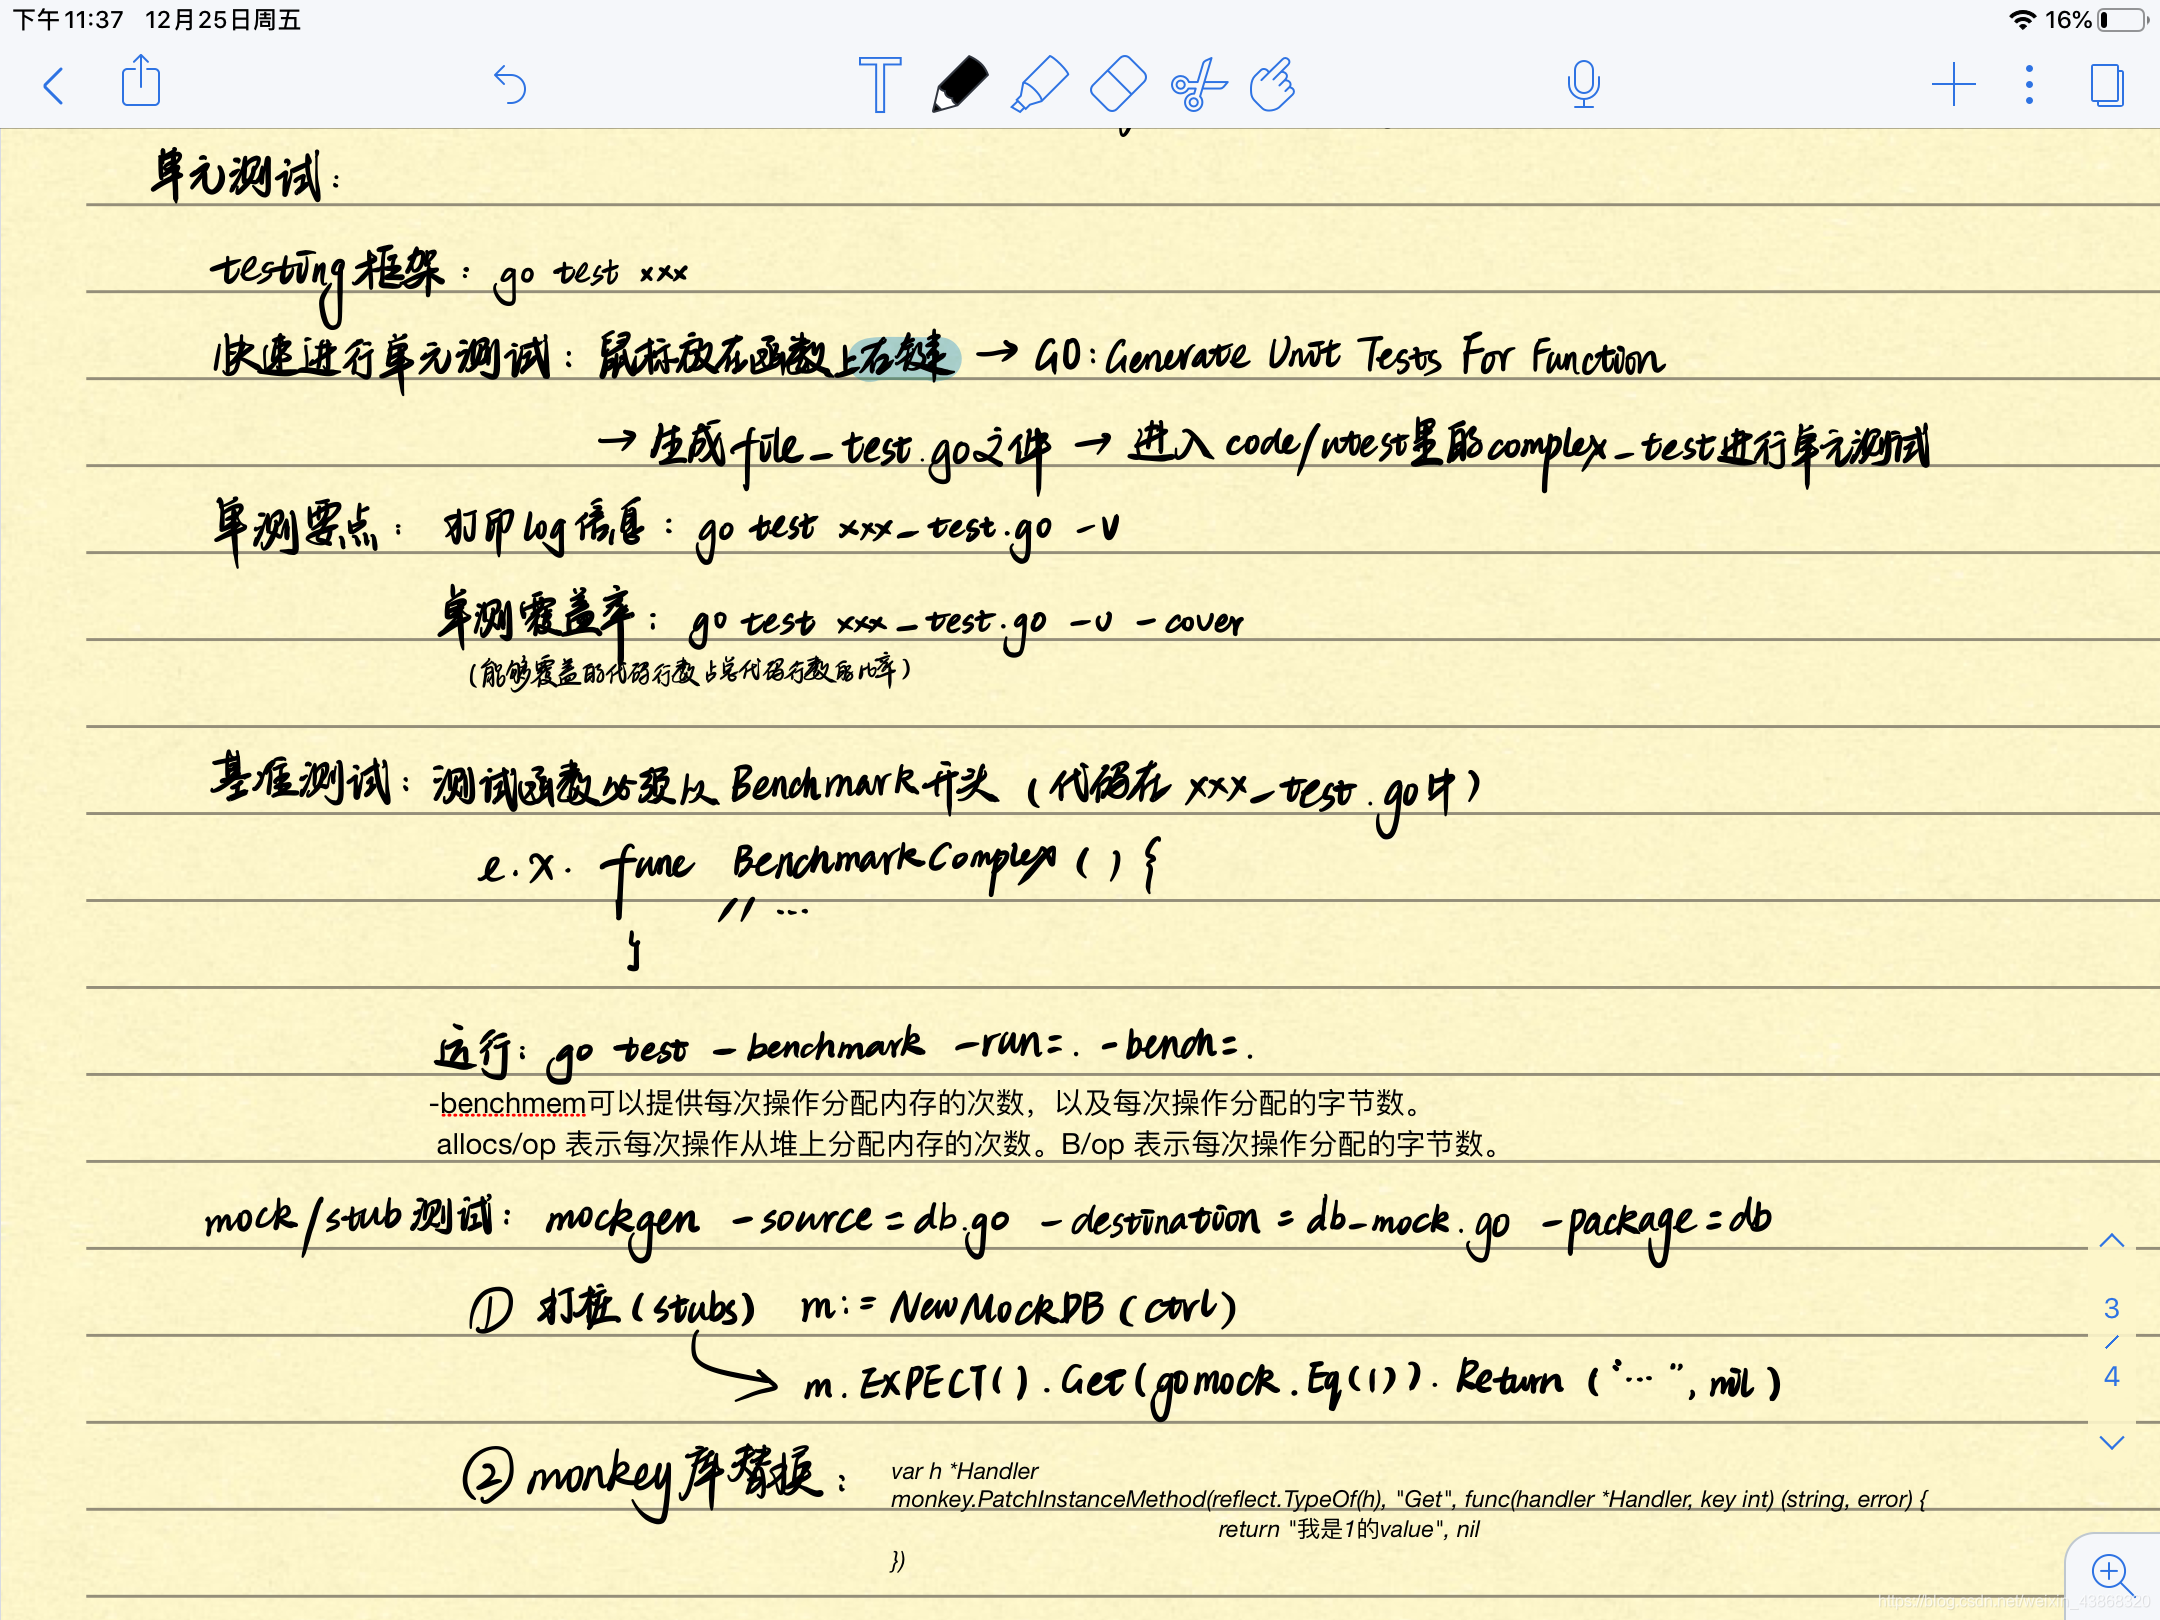 下午11:37 12月25日周五
16%
单元测试：
testing框架：go test xxx
快速进行单元测试：鼠标放在函数上右键 → GO:Generate Unit Tests For Function
→ 生成file_test.go文件 → 进入 code/utest里的complex_test进行单元测试
单测要点：打印log信息：go test xxx_test.go -v
单测覆盖率：go test xxx_test.go -v -cover
(能够覆盖的代码行数占总代码行数的比率)
基准测试：测试函数必须以 Benchmark开头（代码在 xxx_test.go中）
e.x. func BenchmarkComplex() {
// ...
}
运行：go test -benchmark -run=. -bench=.
-benchmem可以提供每次操作分配内存的次数，以及每次操作分配的字节数。
allocs/op 表示每次操作从堆上分配内存的次数。B/op 表示每次操作分配的字节数。
mock/stub测试：mockgen -source=db.go -destination=db_mock.go -package=db
① 打桩(stubs) m:= NewMockDB(ctrl)
m.EXPECT().Get(gomock.Eq(1)).Return("...", nil)
② monkey库替换：
var h *Handler
monkey.PatchInstanceMethod(reflect.TypeOf(h), "Get", func(handler *Handler, key int) (string, error) {
return "我是1的value", nil
})
3
/
4
https://blog.csdn.net/weixin_43868320